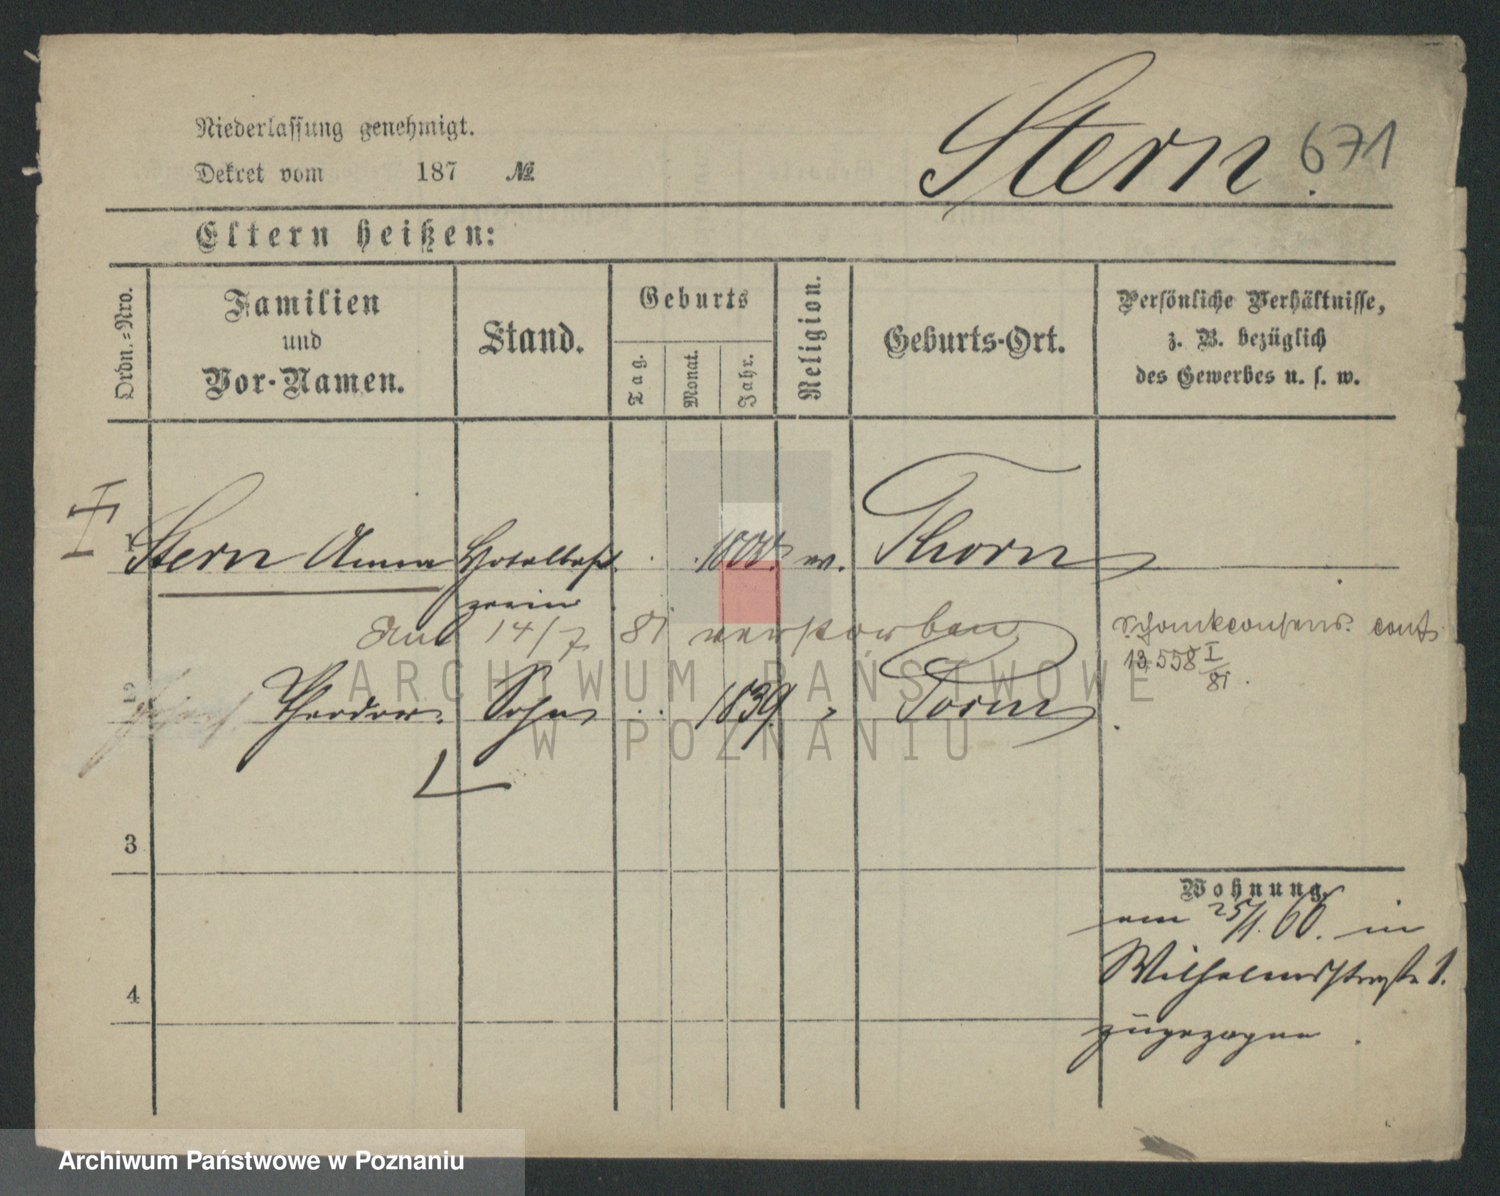 Stern. 671
Niederlassung genehmigt.
Dekret vom 187 №
Eltern heißen:
Ordn.-Nro.
Familien
und
Vor-Namen.
Stand.
Geburts
Tag.
Monat.
Jahr.
Religion.
Geburts-Ort.
Persönliche Verhältnisse,
z. B. bezüglich
des Gewerbes u. s. w.
1 Stern Anna Hotelbesit Thorn
zerin
14/7 81 verstorben Schankconsens.
13558 I/81.
2 Theodor. Sohn 1839 "
3
4
Wohnung.
am 25/1. 66. in
Wilhelmsstraße 1.
zugezogen.
ARCHIWUM PAŃSTWOWE
W POZNANIU
Archiwum Państwowe w Poznaniu